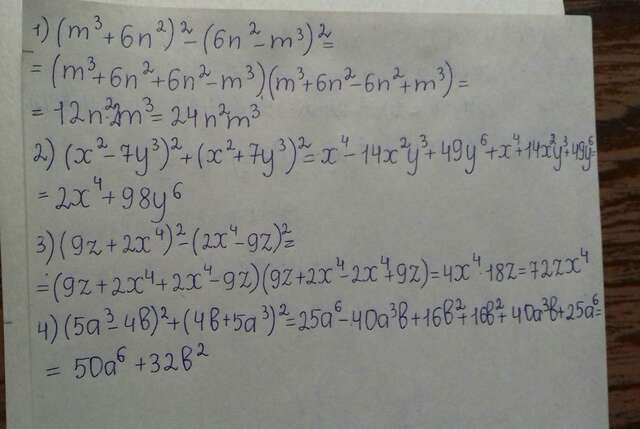 1) (m³+6n²)²-(6n²-m³)²=
=(m³+6n²+6n²-m³)(m³+6n²-6n²+m³)=
=12n²·2m³=24n²m³
2) (x²-7y³)²+(x²+7y³)²=x⁴-14x²y³+49y⁶+x⁴+14x²y³+49y⁶=
=2x⁴+98y⁶
3) (9z+2x⁴)²-(2x⁴-9z)²=
=(9z+2x⁴+2x⁴-9z)(9z+2x⁴-2x⁴+9z)=4x⁴·18z=72zx⁴
4) (5a³-4b)²+(4b+5a³)²=25a⁶-40a³b+16b²+16b²+40a³b+25a⁶=
=50a⁶+32b²